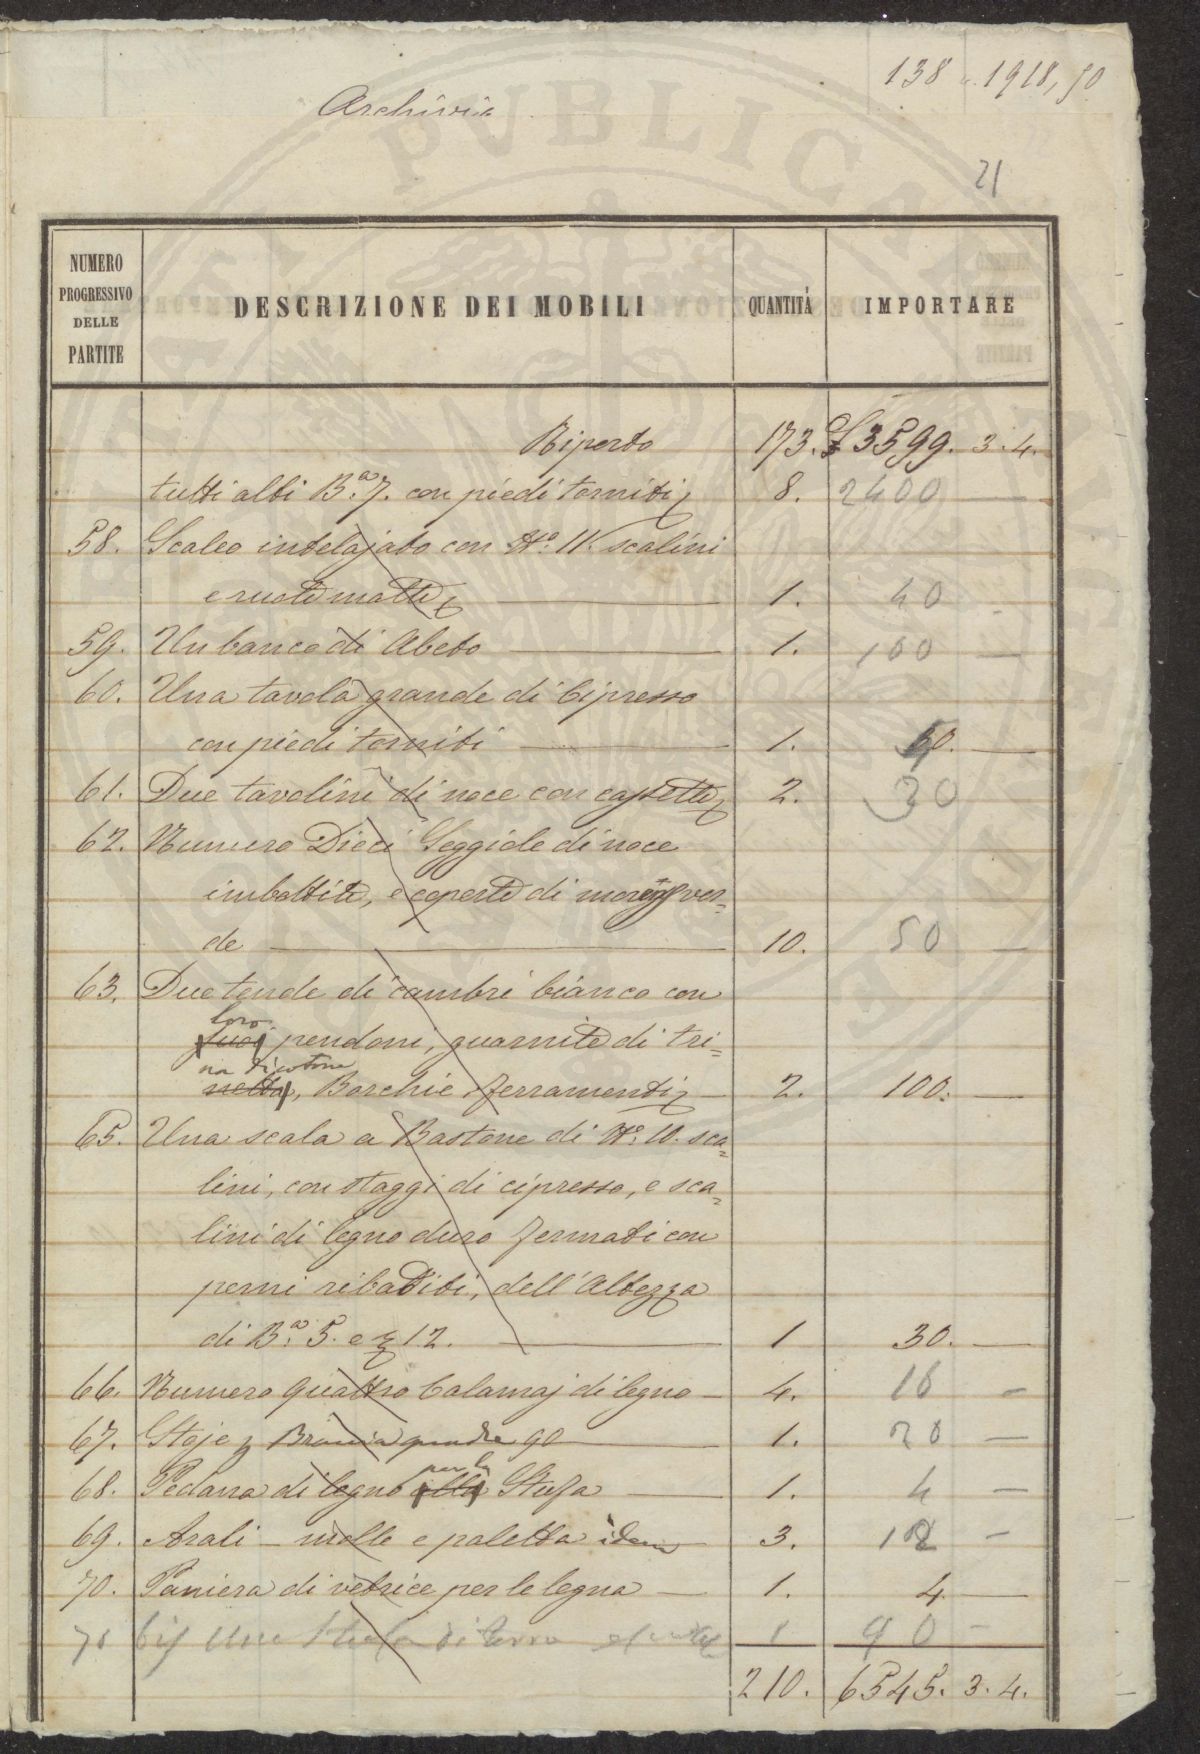 138 1918,50
Archivio
21
NUMERO PROGRESSIVO DELLE PARTITE | DESCRIZIONE DEI MOBILI | QUANTITÀ | IMPORTARE
Riporto 173. £ 3599. 3. 4.
tutti alti B.a 7. con piedi torniti 8. 2400 —
58. Scaleo intelajato con N.o 11. scalini
e ruote matte — 1. 40 —
59. Un banco di Abeto — 1. 100 —
60. Una tavola grande di Cipresso
con piedi torniti — 1. 50. —
61. Due tavolini di noce con cassette 2. 30 —
62. Numero Dieci Seggiole di noce
imbottite, e coperte di ver=
de — 10. 50 —
63. Due tende di cambrì bianco con
loro
suoi pendoni, guarnite di tri=
na di cotone
nella, Borchie ferramenti — 2. 100. —
65. Una scala a Bastone di N.o 10. sca=
lini, con staggi di cipresso, e sca=
lini di legno duro fermati con
perni ribaditi, dell'Altezza
di B.a 5. e 12. — 1 30. —
66. Numero quattro Calamaj di legno — 4. 16 —
67. Stoje Braccia quadre 90 — 1. 20 —
per la
68. Pedana di legno alla Stufa — 1. 4 —
69. Arali — molle e paletta idem 3. 12 —
70. Paniera di vetrice per le legna — 1. 4 —
70 bis Una Stufa di terra 1 90 —
210. 6545. 3. 4.